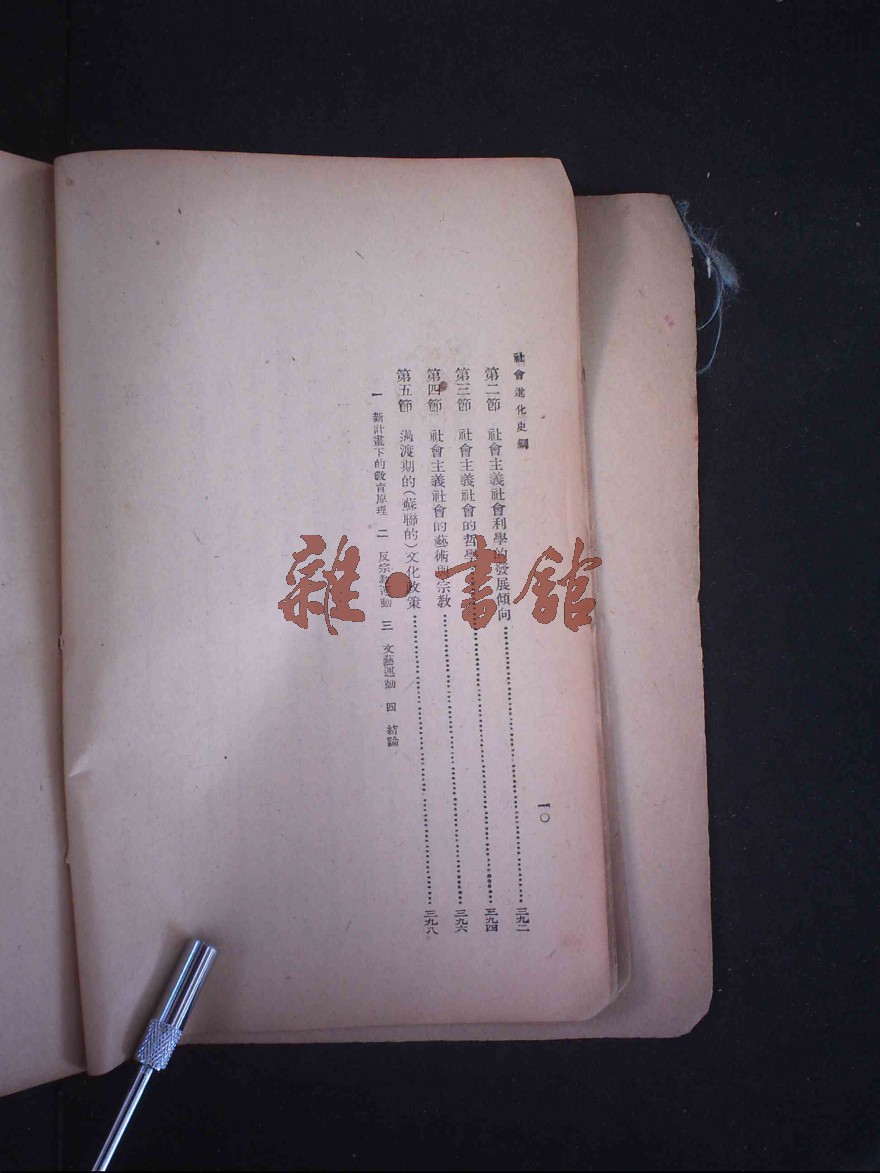 社會進化史綱
一〇
第二節 社會主義社會利學的發展傾向……三九二
第三節 社會主義社會的哲學……三九四
第四節 社會主義社會的藝術與宗教……三九六
第五節 過渡期的(蘇聯的)文化政策……三九八
一 新計畫下的敎育原理 二 反宗敎活動 三 文藝運動 四 結論
雜·書館